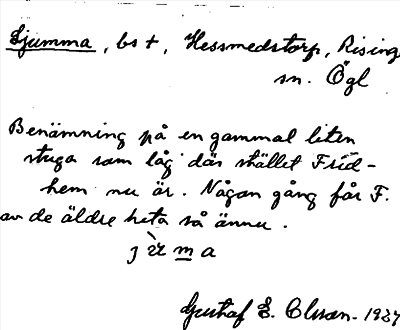 Ljumma, bs +, Hessmedstorp, Rising
sn. Ögl
Benämning på en gammal liten
stuga som låg där stället Frid-
hem nu är. Någon gång får F.
av de äldre heta så ännu.
Gustaf E. Olsson - 1927